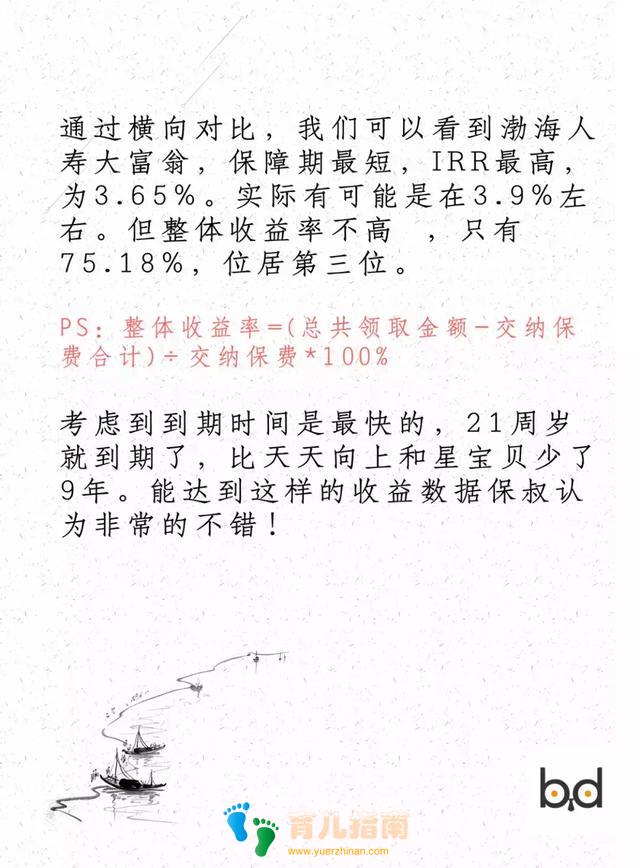 通过横向对比，我们可以看到渤海人
寿大富翁，保障期最短，IRR最高，
为3.65%。实际有可能是在3.9%左
右。但整体收益率不高 ，只有
75.18%，位居第三位。
PS：整体收益率=(总共领取金额-交纳保
费合计)÷交纳保费*100%
考虑到到期时间是最快的，21周岁
就到期了，比天天向上和星宝贝少了
9年。能达到这样的收益数据保叔认
为非常的不错！
b,d
育儿指南
www.yuerzhinan.com